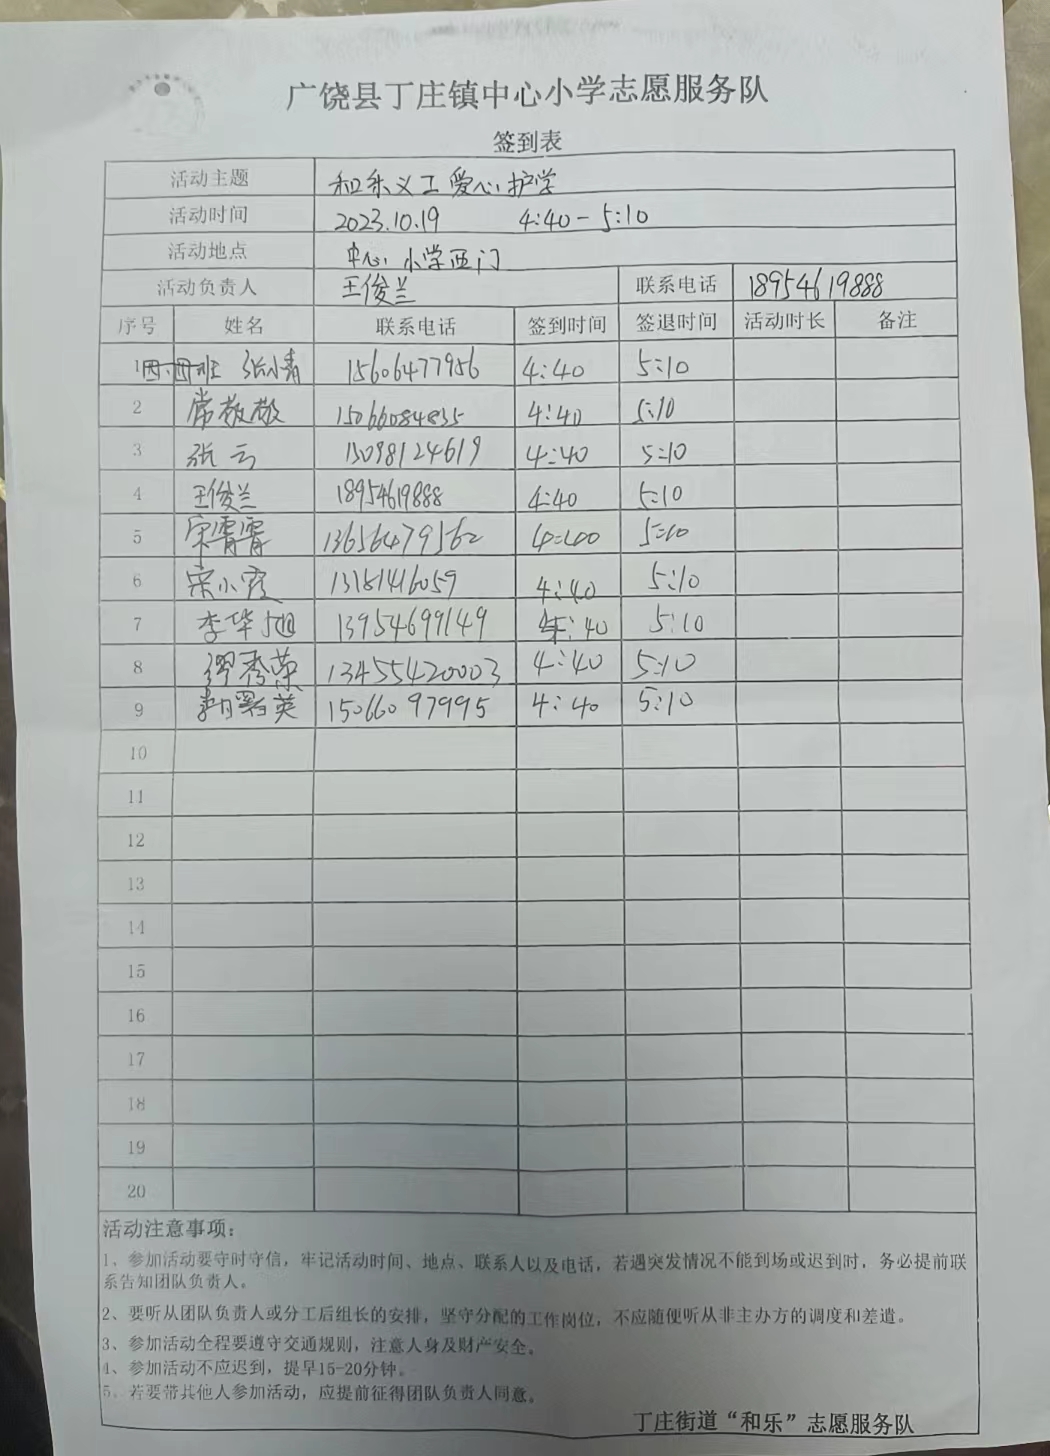 广饶县丁庄镇中心小学志愿服务队
签到表
活动主题 和乐义工爱心护学
活动时间 2023.10.19 4:40-5:10
活动地点 中心小学西门
活动负责人 王俊兰 联系电话 18954619888
序号 姓名 联系电话 签到时间 签退时间 活动时长 备注
1 四.四班 张小青 15606477956 4:40 5:10
2 常敬敬 15066084835 4:40 5:10
3 张云 13098124619 4:40 5:10
4 王俊兰 18954619888 4:40 5:10
5 宋霄霄 13656479562 4:40 5:10
6 宋小霞 13181416059 4:40 5:10
7 李华旭 13954699149 4:40 5:10
8 缪秀荣 13455420003 4:40 5:10
9 英 15066097995 4:40 5:10
10
11
12
13
14
15
16
17
18
19
20
活动注意事项：
1、参加活动要守时守信，牢记活动时间、地点、联系人以及电话，若遇突发情况不能到场或迟到时，务必提前联
系告知团队负责人。
2、要听从团队负责人或分工后组长的安排，坚守分配的工作岗位，不应随便听从非主办方的调度和差遣。
3、参加活动全程要遵守交通规则，注意人身及财产安全。
4、参加活动不应迟到，提早15-20分钟。
5、若要带其他人参加活动，应提前征得团队负责人同意。
丁庄街道“和乐”志愿服务队